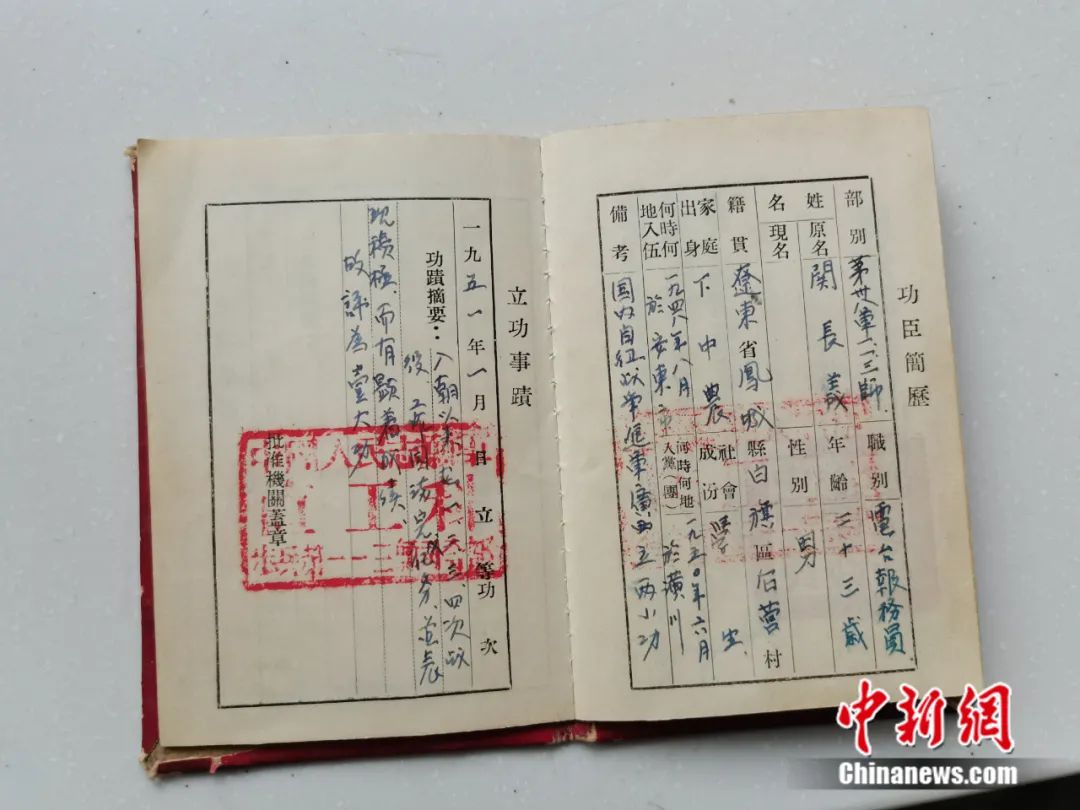 功臣簡歷
部別 第卅八軍一一三師 職別 電台報務員
姓名 原名 關長義 年齡 二十三歲
現名 性別 男
籍貫 遼東省鳳城縣白旗區伯营村
家庭出身 下中農 社會成份 學生
何時何地入伍 一九四八年八月於安東市 何時何地入黨(團) 一九五〇年六月於潢川
備考 国内自 广西立两小功
立功事蹟
一九五一年一月 日立 等功 次
功蹟摘要：入朝以来在一、二、三、四次战
役 工作 完成任务，並表
现積極，而有顯著成績
故評為壹大功
批准機關蓋章
中新網
Chinanews.com